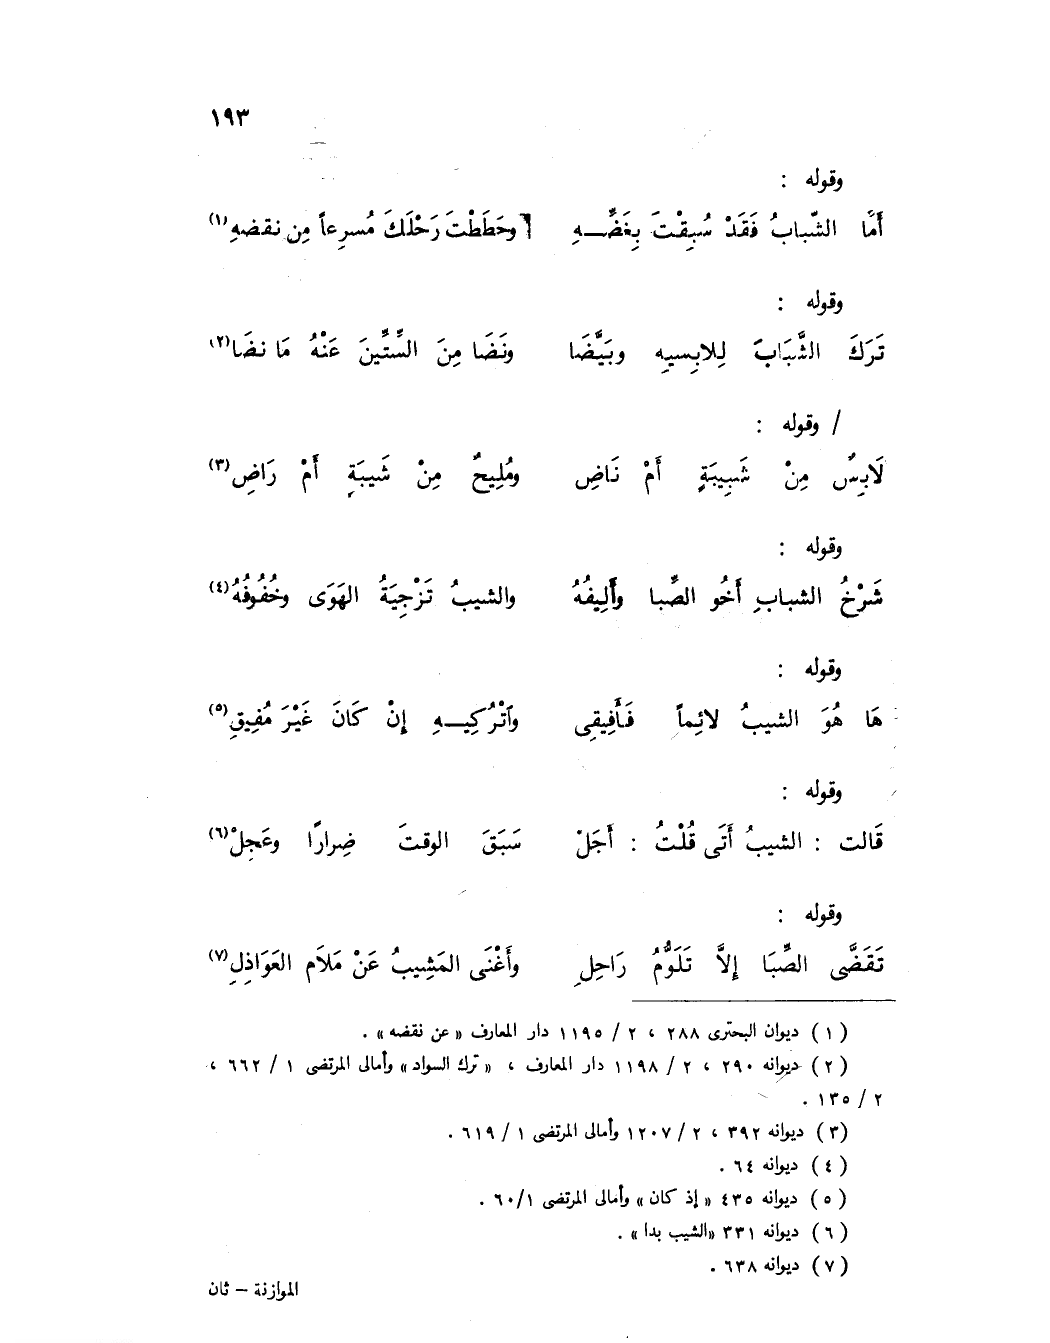 ١٩٣
وقوله :
أَمَّا الشَّبابُ فَقَدْ سُبِقْتَ بِغَضِّــهِ وحَطَطْتَ رَحْلَكَ مُسرِعاً مِن نقضهِ(١)
وقوله :
تَرَكَ الشَّبَابَ لِلابِسيهِ وبَيَّضَا ونَضَا مِنَ السِّتِّينَ عَنْهُ مَا نضَا(٢)
/ وقوله :
لَابِسٌ مِنْ شَبِيبَةٍ أَمْ نَاضِ ومُلِيحٌ مِنْ شَيبَةٍ أَمْ رَاضِ(٣)
وقوله :
شَرْخُ الشبابِ أَخُو الصِّبا وأَلِيفُهُ والشيبُ تَزْجِيَةُ الهَوَى وخُفُوفُهُ(٤)
وقوله :
هَا هُوَ الشيبُ لائِماً فَأَفِيقِى وَاتْرُكِيــهِ إِنْ كَانَ غَيْرَ مُفِيقِ(٥)
وقوله :
قَالت : الشيبُ أَتَى قُلْتُ : أَجَلْ سَبَقَ الوقتَ ضِرارًا وعَجِلْ(٦)
وقوله :
تَقَضَّى الصِّبَا إِلاَّ تَلَوُّمُ رَاحِلِ وأَغْنَى المَشِيبُ عَنْ مَلاَمِ العَوَاذِلِ(٧)
(١) ديوان البحترى ٢٨٨ ، ٢ / ١١٩٥ دار المعارف « عن نقضه » .
(٢) ديوانه ٢٩٠ ، ٢ / ١١٩٨ دار المعارف ، « ترك السواد » وأمالى المرتضى ١ / ٦٦٢ ،
٢ / ١٣٥ .
(٣) ديوانه ٣٩٢ ، ٢ / ١٢٠٧ وأمالى المرتضى ١ / ٦١٩ .
(٤) ديوانه ٦٤ .
(٥) ديوانه ٤٣٥ « إذ كان » وأمالى المرتضى ٦٠/١ .
(٦) ديوانه ٣٣١ «الشيب بدا » .
(٧) ديوانه ٦٣٨ .
الموازنة – ثان